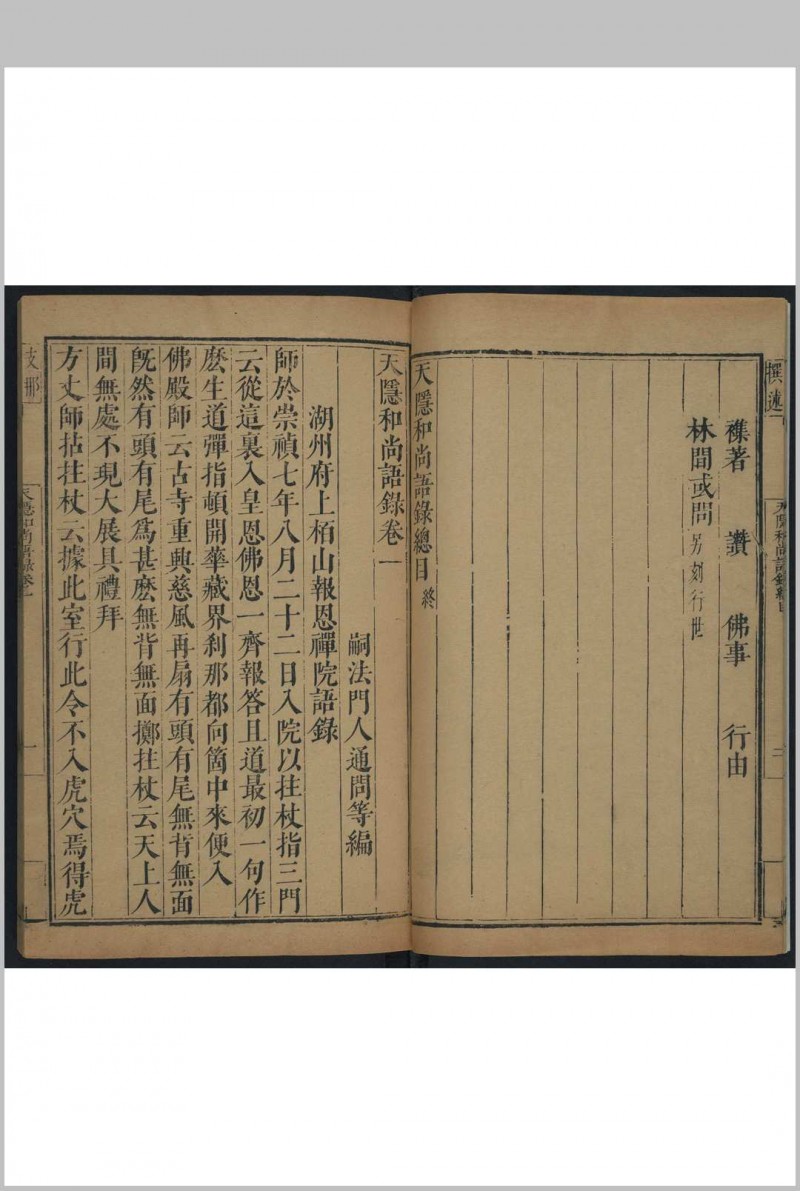 撰述
天隱和尚語錄總目
二
襍著 讚 佛事 行由
林間或問另刻行世
天隱和尚語錄總目終
天隱和尚語錄卷一
嗣法門人通問等編
湖州府上栢山報恩禪院語錄
師於崇禎七年八月二十二日入院以拄杖指三門
云從這裏入皇恩佛恩一齊報答且道最初一句作
麽生道彈指頓開華藏界剎那都向箇中來便入
佛殿師云古寺重興慈風再扇有頭有尾無背無面
旣然有頭有尾爲甚麽無背無面擲拄杖云天上人
間無處不現大展具禮拜
方丈師拈拄杖云據此室行此令不入虎穴焉得虎
支那
天隱和尚語錄卷一
一